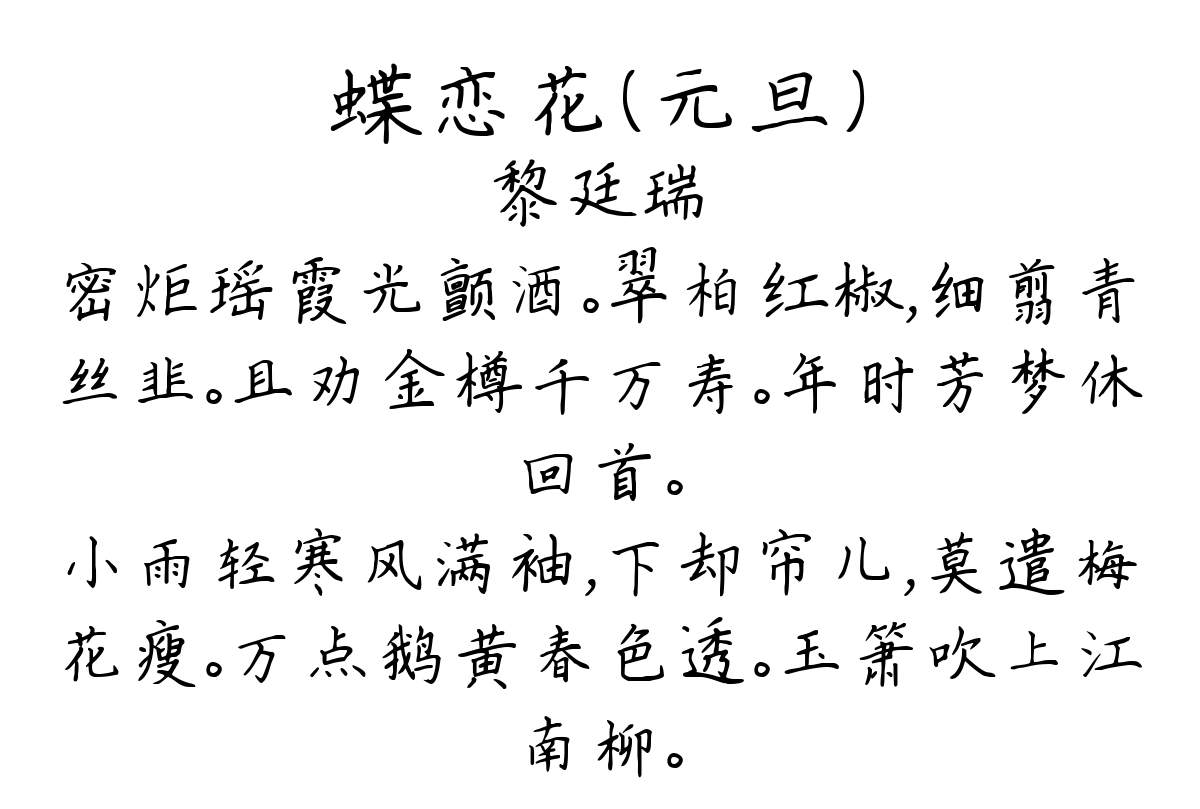 蝶恋花(元旦)
黎廷瑞
密炬瑶霞光颤酒。翠柏红椒,细翦青
丝韭。且劝金樽千万寿。年时芳梦休
回首。
小雨轻寒风满袖,下却帘儿,莫遣梅
花瘦。万点鹅黄春色透。玉箫吹上江
南柳。